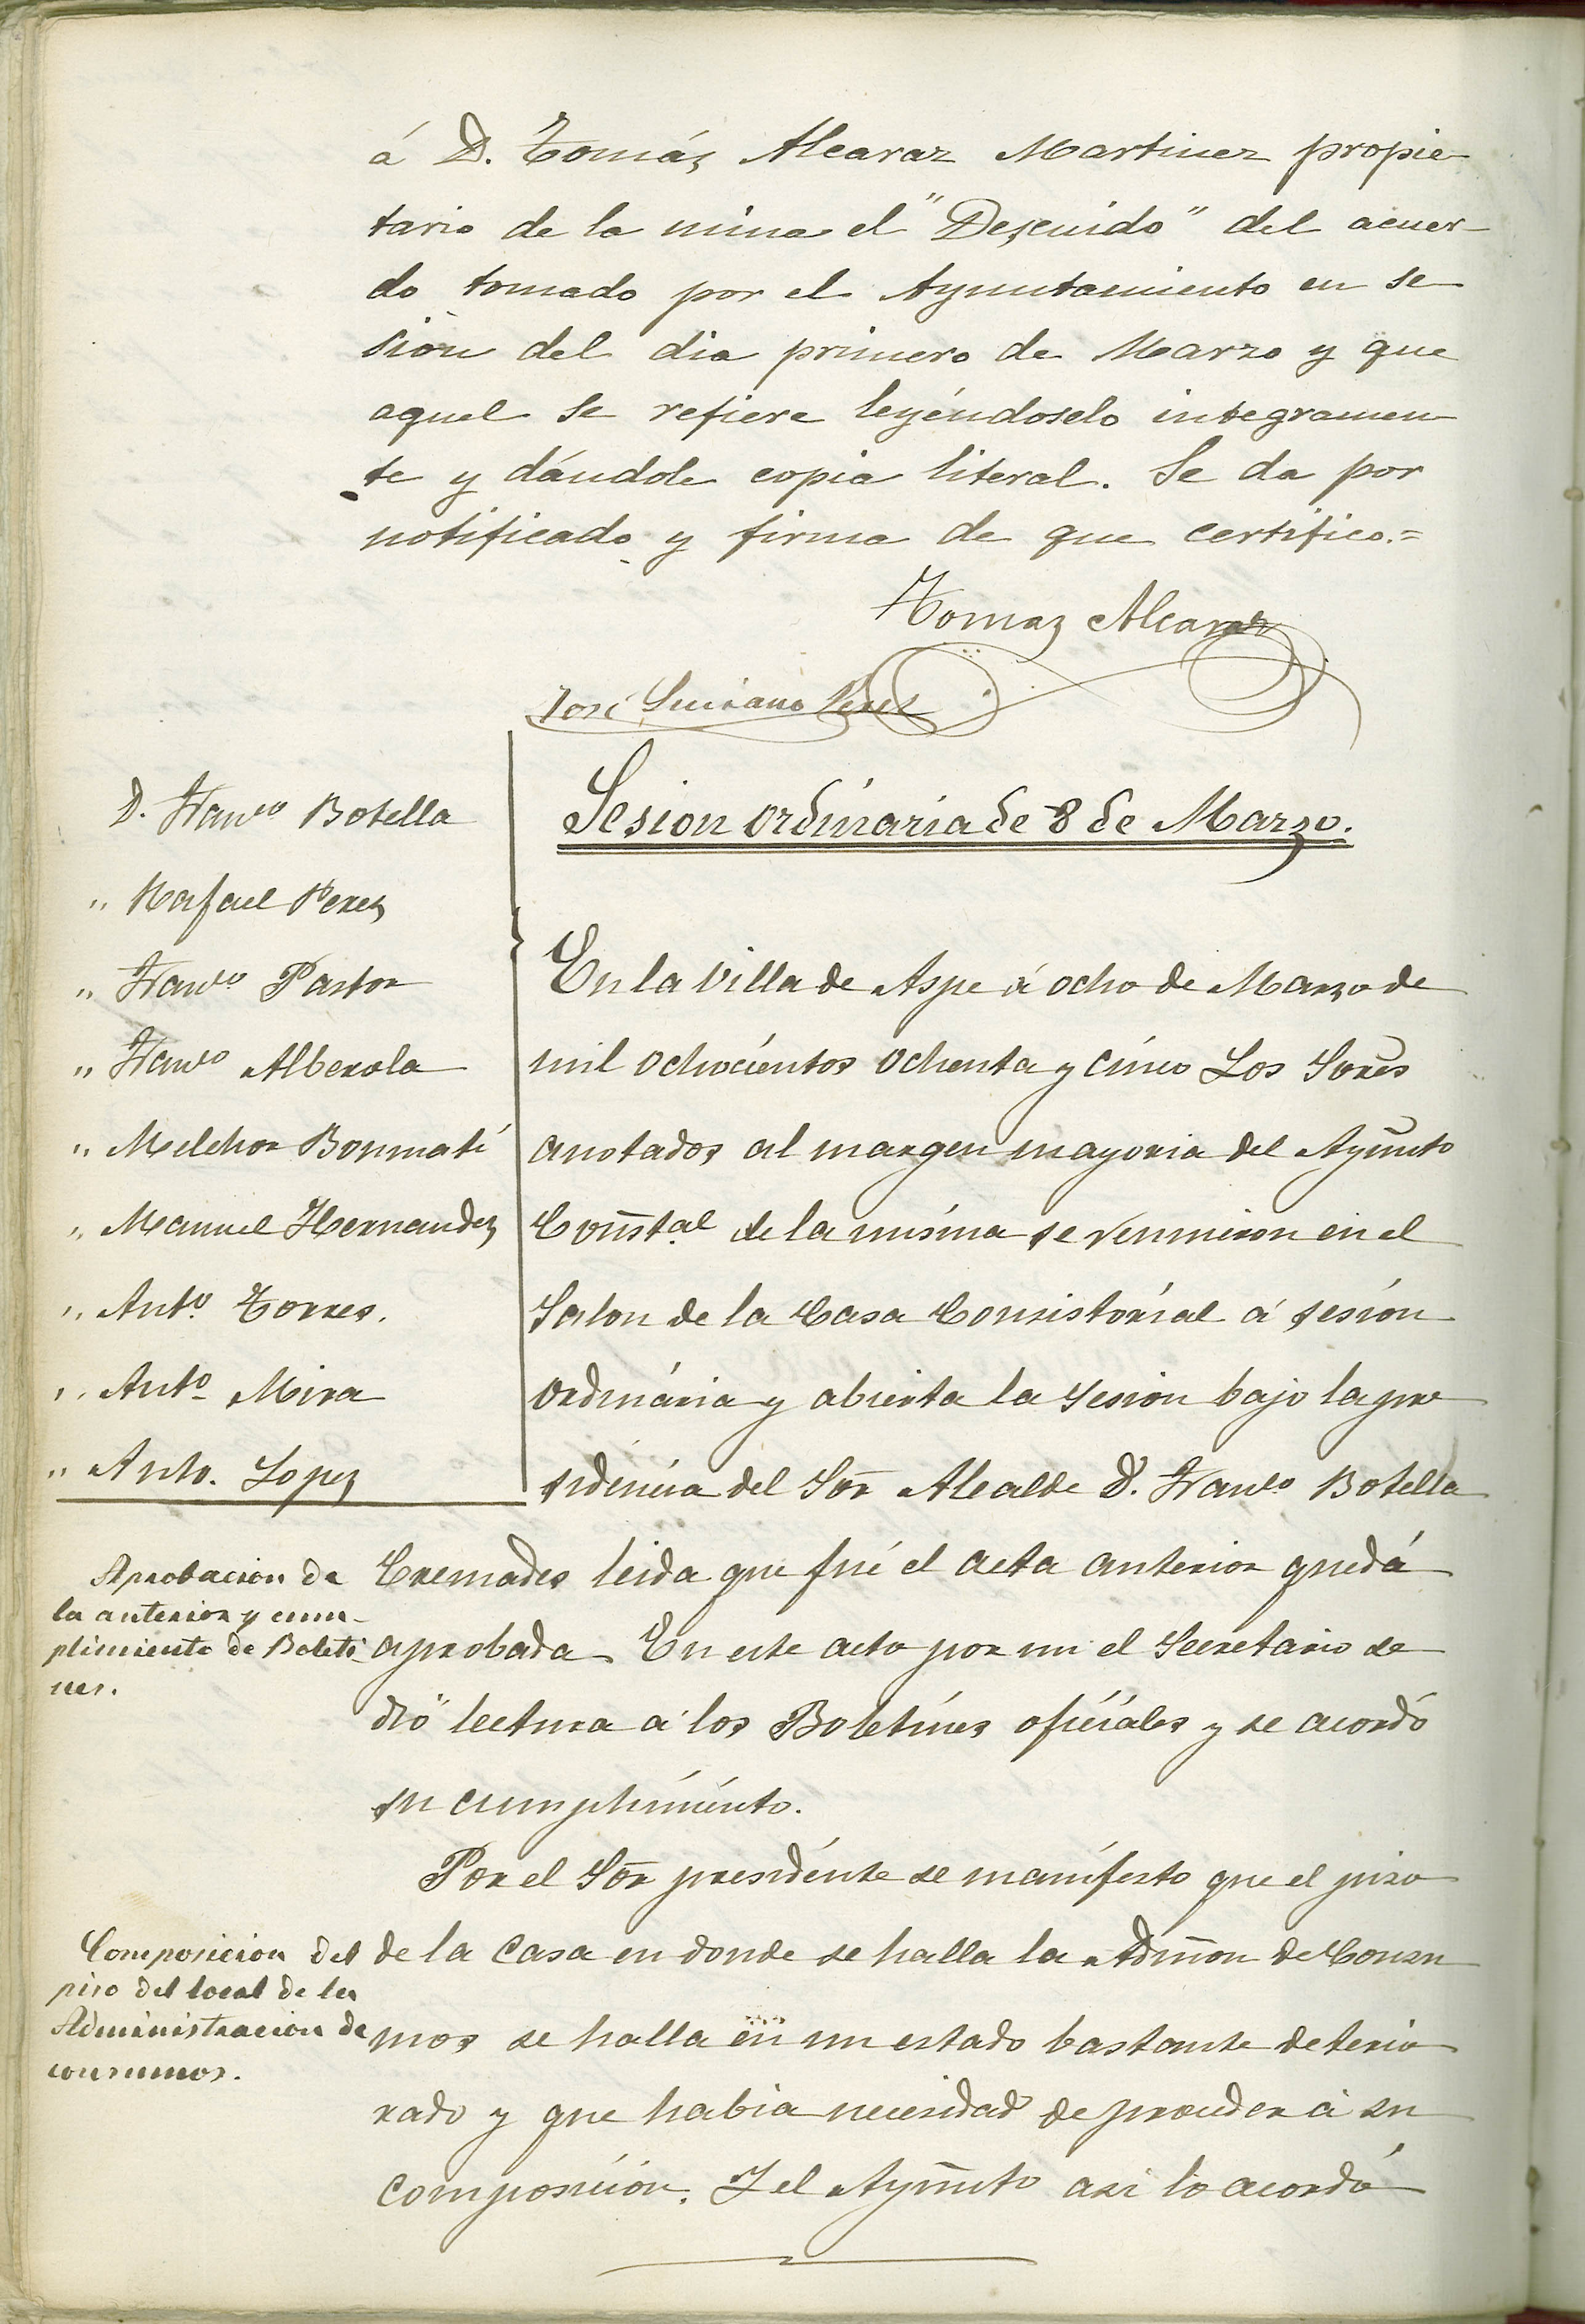 á D. Tomás Alcaraz Martinez propie-
tario de la mina el "Descuido" del acuer-
do tomado por el Ayuntamiento en se
sión del dia primero de Marzo y que
aquel se refiere leyéndoselo integramen
te y dándole copia literal. Se da por
notificado y firma de que certifico.=
Tomaz Alcaraz
José Luciano Perez
D. Franco Botella
" Rafael Perez
" Franco Pastor
" Franco Alberola
" Melchor Bonmatí
" Manuel Hernandez
" Anto. Torres.
" Anto Mira
" Anto. Lopez
Sesion ordinaria de 8 de Marzo.
En la Villa de Aspe á ocho de Marzo de
mil ochocientos ochenta y cinco Los Sōres
anotados al margen mayoria del Ayūnto
Con̄stal de la misma se reunieron en el
Salon de la Casa Consistorial á sesión
ordinária y abierta la Sesion bajo la pre
sidencia del Sōr Alcalde D. Franco Botella
Aprobacion de
la anterior y cum-
plimiento de Boleti-
nes.
Cremades leida que fué el acta anterior quedá
aprobada. En este acto por mi el Secretario se
dió lectura á los Boletines oficiales y se acordó
su cumplimiento.
Por el Sōr presidente se manifesto que el piso
Composicion del
piso del local de la
Administracion de
consumos.
de la Casa en donde se halla la Adm̄on de Consu
mos se halla en un estado bastante deterio
rado y que habia necesidad de proceder á su
composición. Y el Ayūnto asi lo acordó